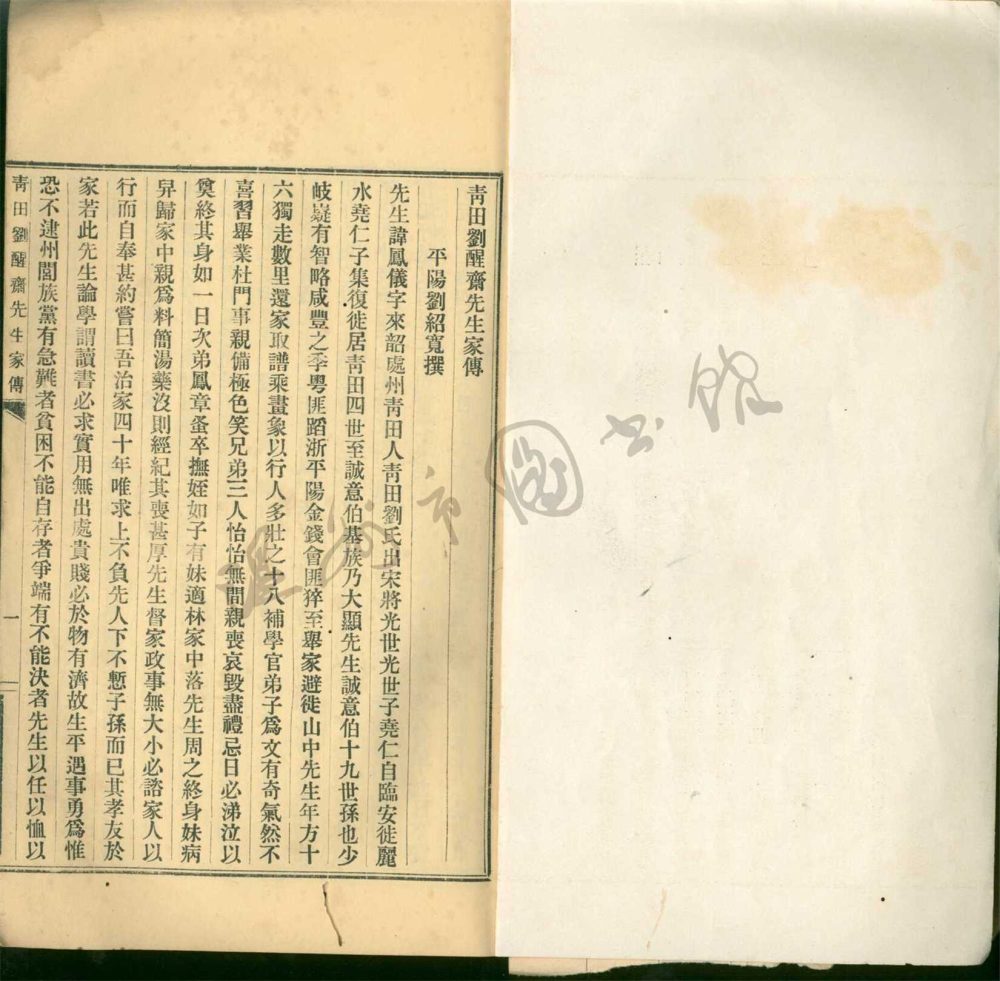 青田劉醒齋先生家傳
平陽劉紹寬撰
先生諱鳳儀字來韶處州青田人青田劉氏出宋將光世光世子堯仁自臨安徙麗
水堯仁子集復徙居青田四世至誠意伯基族乃大顯先生誠意伯十九世孫也少
岐嶷有智略咸豐之季粵匪蹈浙平陽金錢會匪猝至舉家避徙山中先生年方十
六獨走數里還家取譜乘畫象以行人多壯之十八補學官弟子爲文有奇氣然不
喜習舉業杜門事親備極色笑兄弟三人怡怡無間親喪哀毀盡禮忌日必涕泣以
奠終其身如一日次弟鳳章蚤卒撫姪如子有妹適林家中落先生周之終身妹病
舁歸家中親爲料簡湯藥沒則經紀其喪甚厚先生督家政事無大小必諮家人以
行而自奉甚約嘗曰吾治家四十年唯求上不負先人下不慙子孫而已其孝友於
家若此先生論學謂讀書必求實用無出處貴賤必於物有濟故生平遇事勇爲惟
恐不逮州閭族黨有急難者貧困不能自存者爭端有不能決者先生以任以恤以
青田劉醒齋先生家傳
一
温州市圖书館